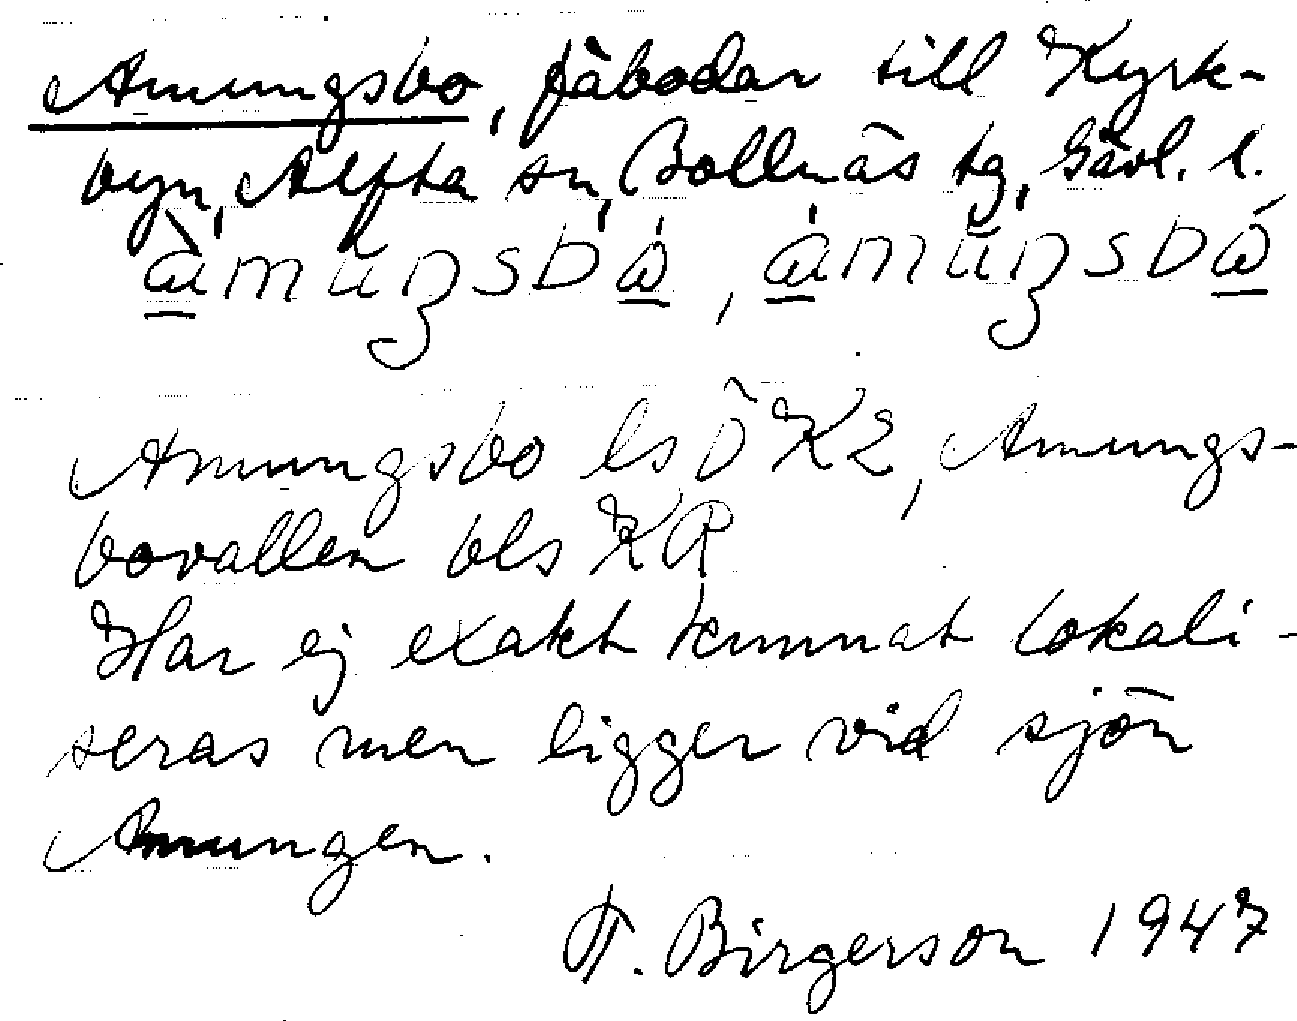 Amungsbo, fäbodar till Kyrk-
byn, Alfta sn, Bollnäs tg, Gävl. l.
Amungsbo ls ÖKL, Amungs-
bovallen bls KR
Har ej exakt kunnat lokali-
seras men ligger vid sjön
Amungen.
T. Birgerson 1947